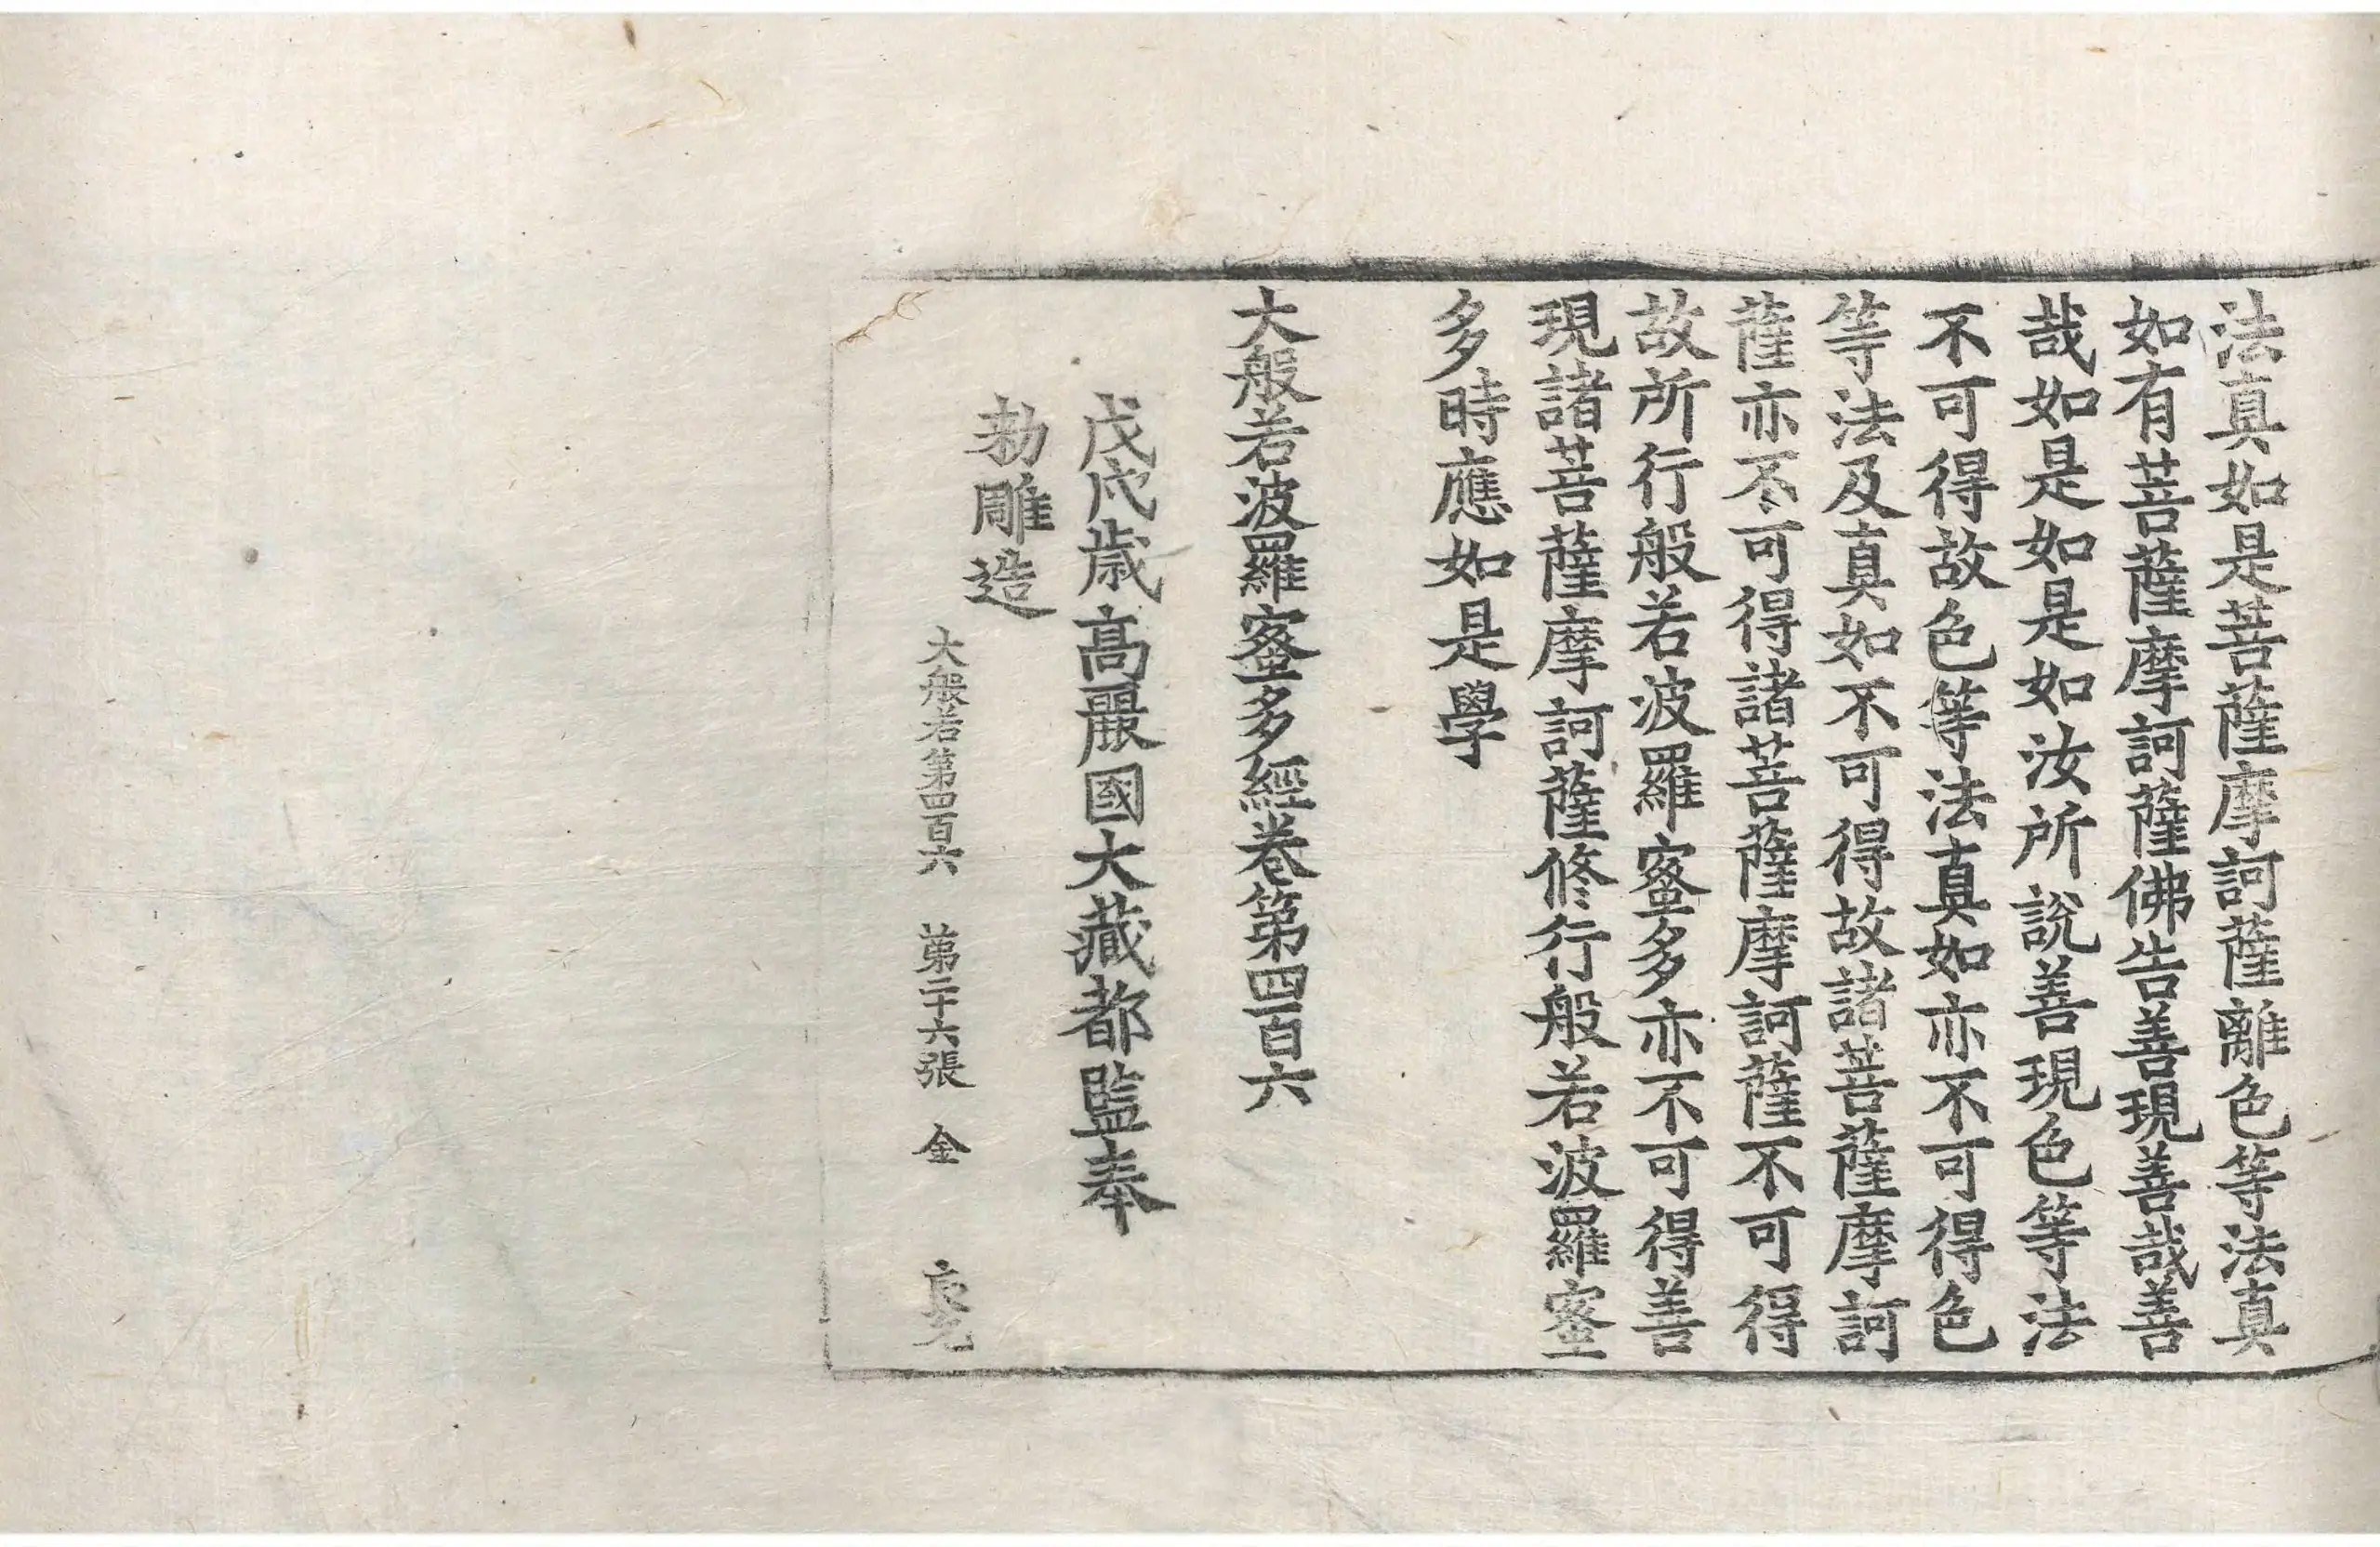 法真如是菩薩摩訶薩離色等法真
如有菩薩摩訶薩佛告善現善哉善
哉如是如是如汝所說善現色等法
不可得故色等法真如亦不可得色
等法及真如不可得故諸菩薩摩訶
薩亦不可得諸菩薩摩訶薩不可得
故所行般若波羅蜜多亦不可得善
現諸菩薩摩訶薩修行般若波羅蜜
多時應如是學
大般若波羅蜜多經卷第四百六
戊戌歲高麗國大藏都監奉
勑雕造
大般若第四百六 第二十六張 金